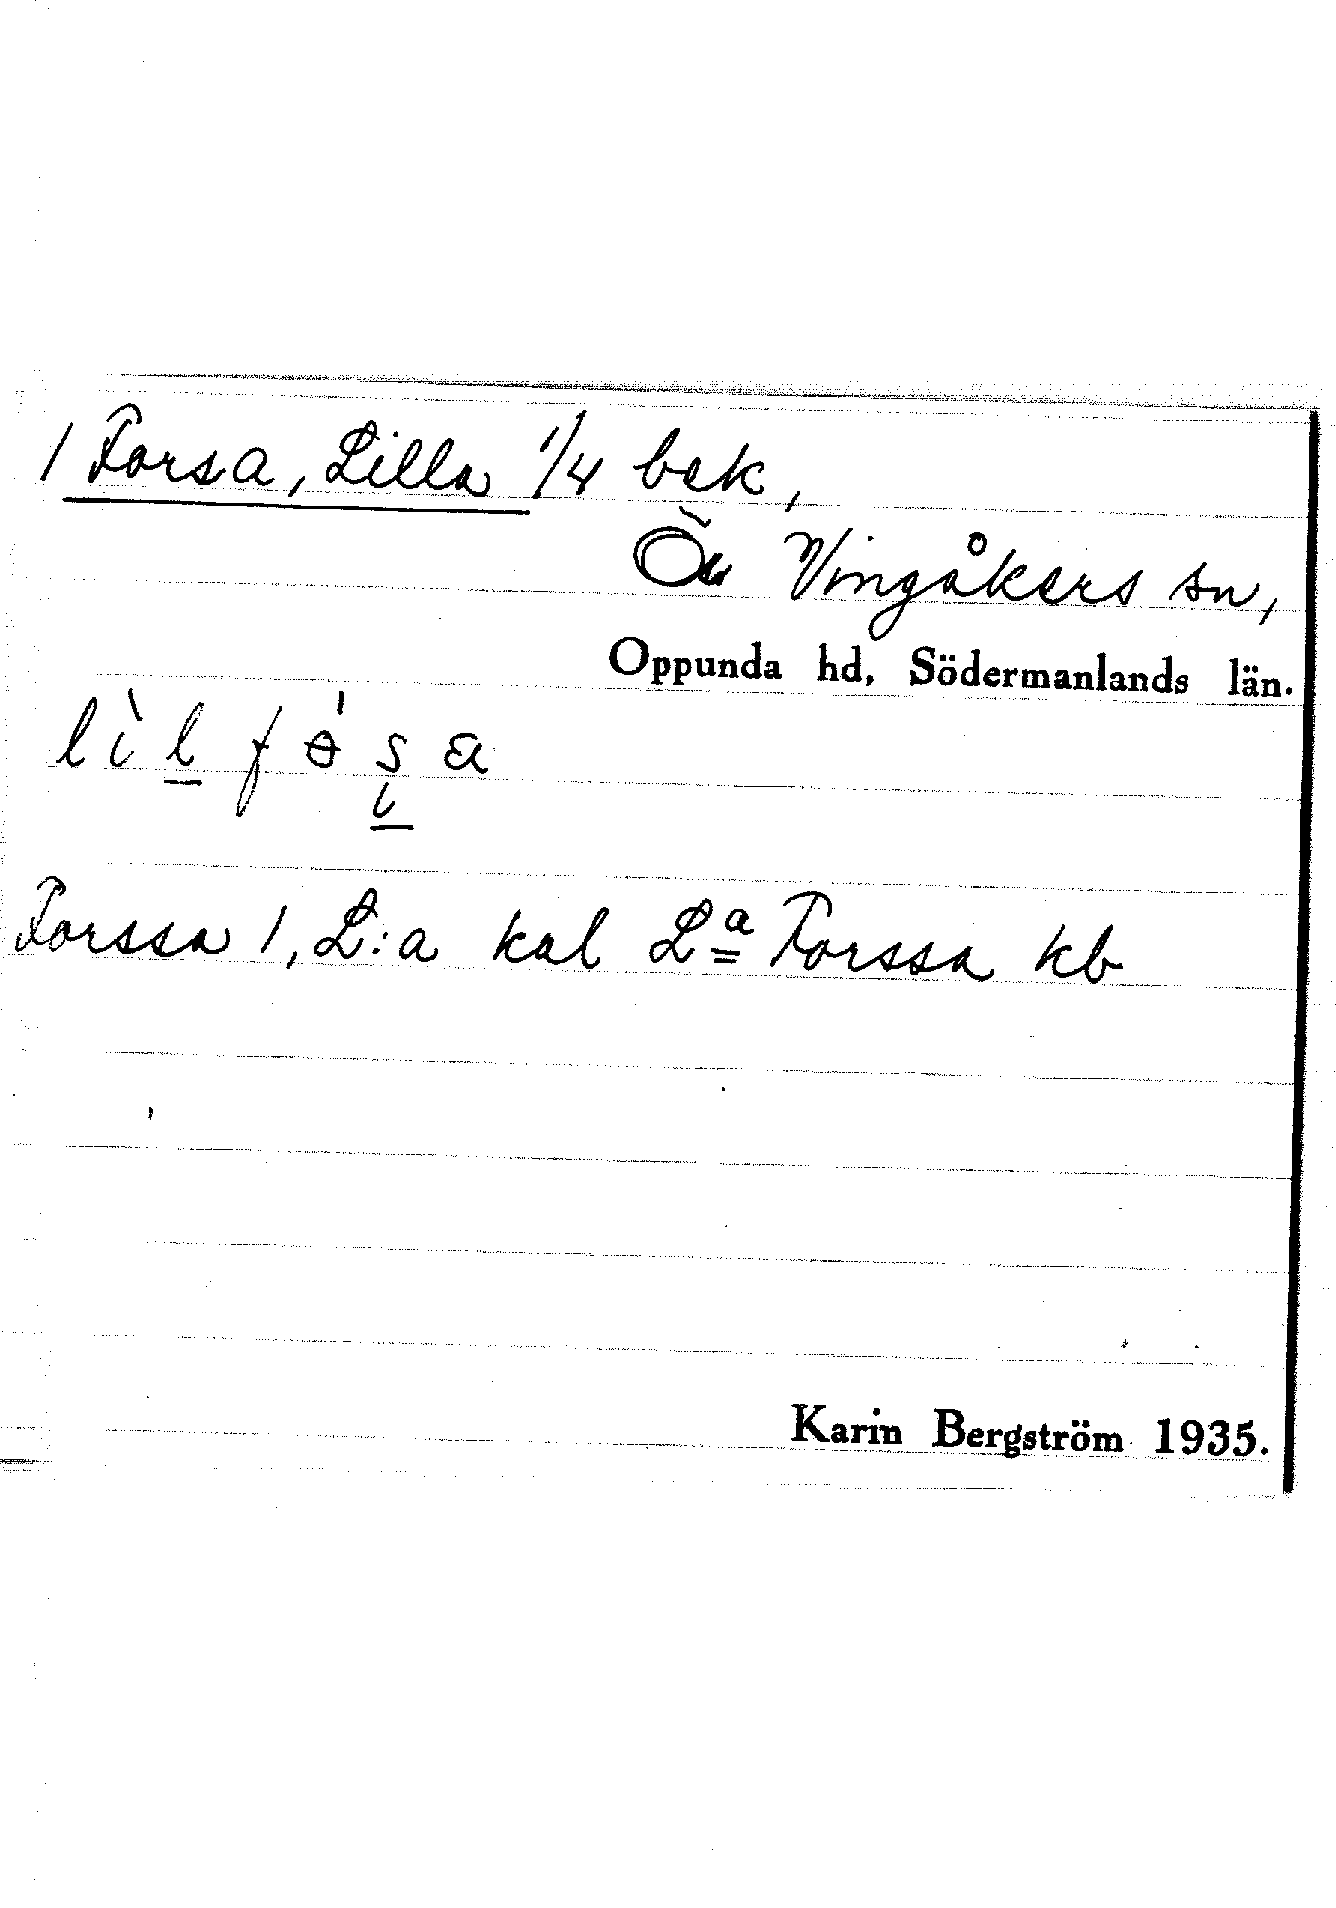 1 Forsa, Lilla 1/4 bek,
Ö Vingåkers sn,
Oppunda hd, Södermanlands län.
lìl fɵ́sa
Forssa 1, L:a kal Lª Forssa kb
Karin Bergström 1935.